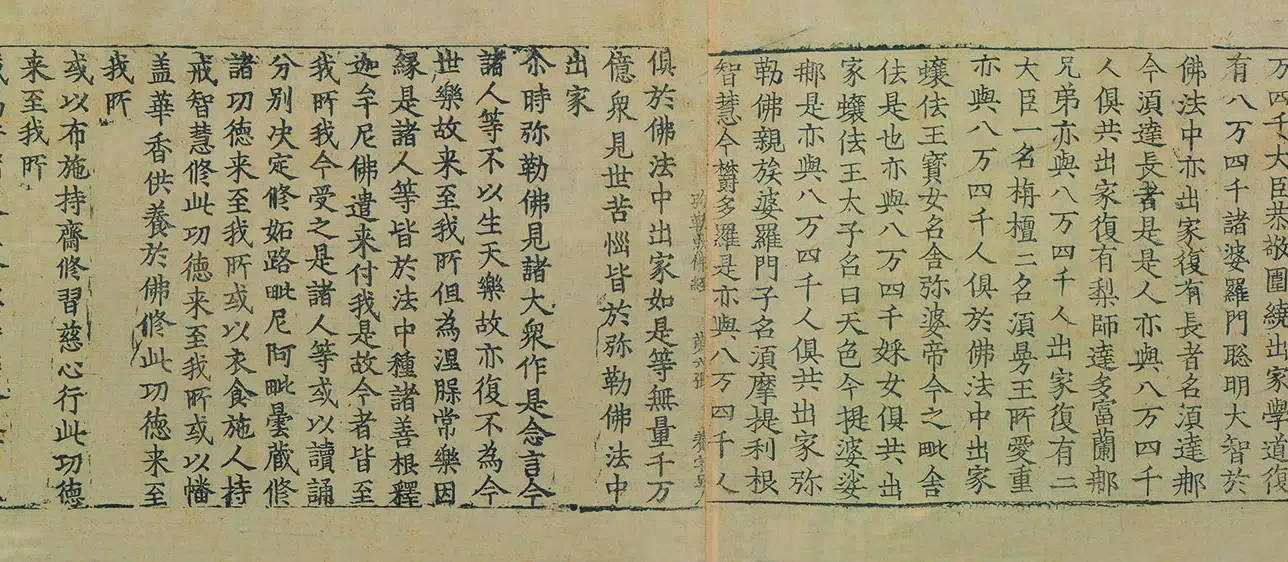 万四千大臣恭敬圍繞出家學道復
有八万四千諸婆羅門聡明大智於
佛法中亦出家復有長者名須達那
今須達長者是是人亦與八万四千
人俱共出家復有梨師達多富蘭那
兄弟亦與八万四千人出家復有二
大臣一名栴檀二名須曼王所愛重
亦與八万四千人俱於佛法中出家
蠰佉王寶女名舍弥婆帝今之毗舍
佉是也亦與八万四千婇女俱共出
家蠰佉王太子名曰天色今提婆娑
那是亦與八万四千人俱共出家弥
勒佛親族婆羅門子名須摩提利根
智慧今欝多羅是亦與八万四千人
俱於佛法中出家如是等無量千万
億衆見世苦惱皆於弥勒佛法中
出家
尒時弥勒佛見諸大衆作是念言今
諸人等不以生天樂故亦復不為今
世樂故来至我所但為涅槃常樂因
縁是諸人等皆於法中種諸善根釋
迦牟尼佛遣来付我是故今者皆至
我所我今受之是諸人等或以讀誦
分別决定修妬路毗尼阿毗曇藏修
諸功德来至我所或以衣食施人持
戒智慧修此功德来至我所或以幡
盖華香供養於佛修此功德来至
我所
或以布施持齋修習慈心行此功德
来至我所